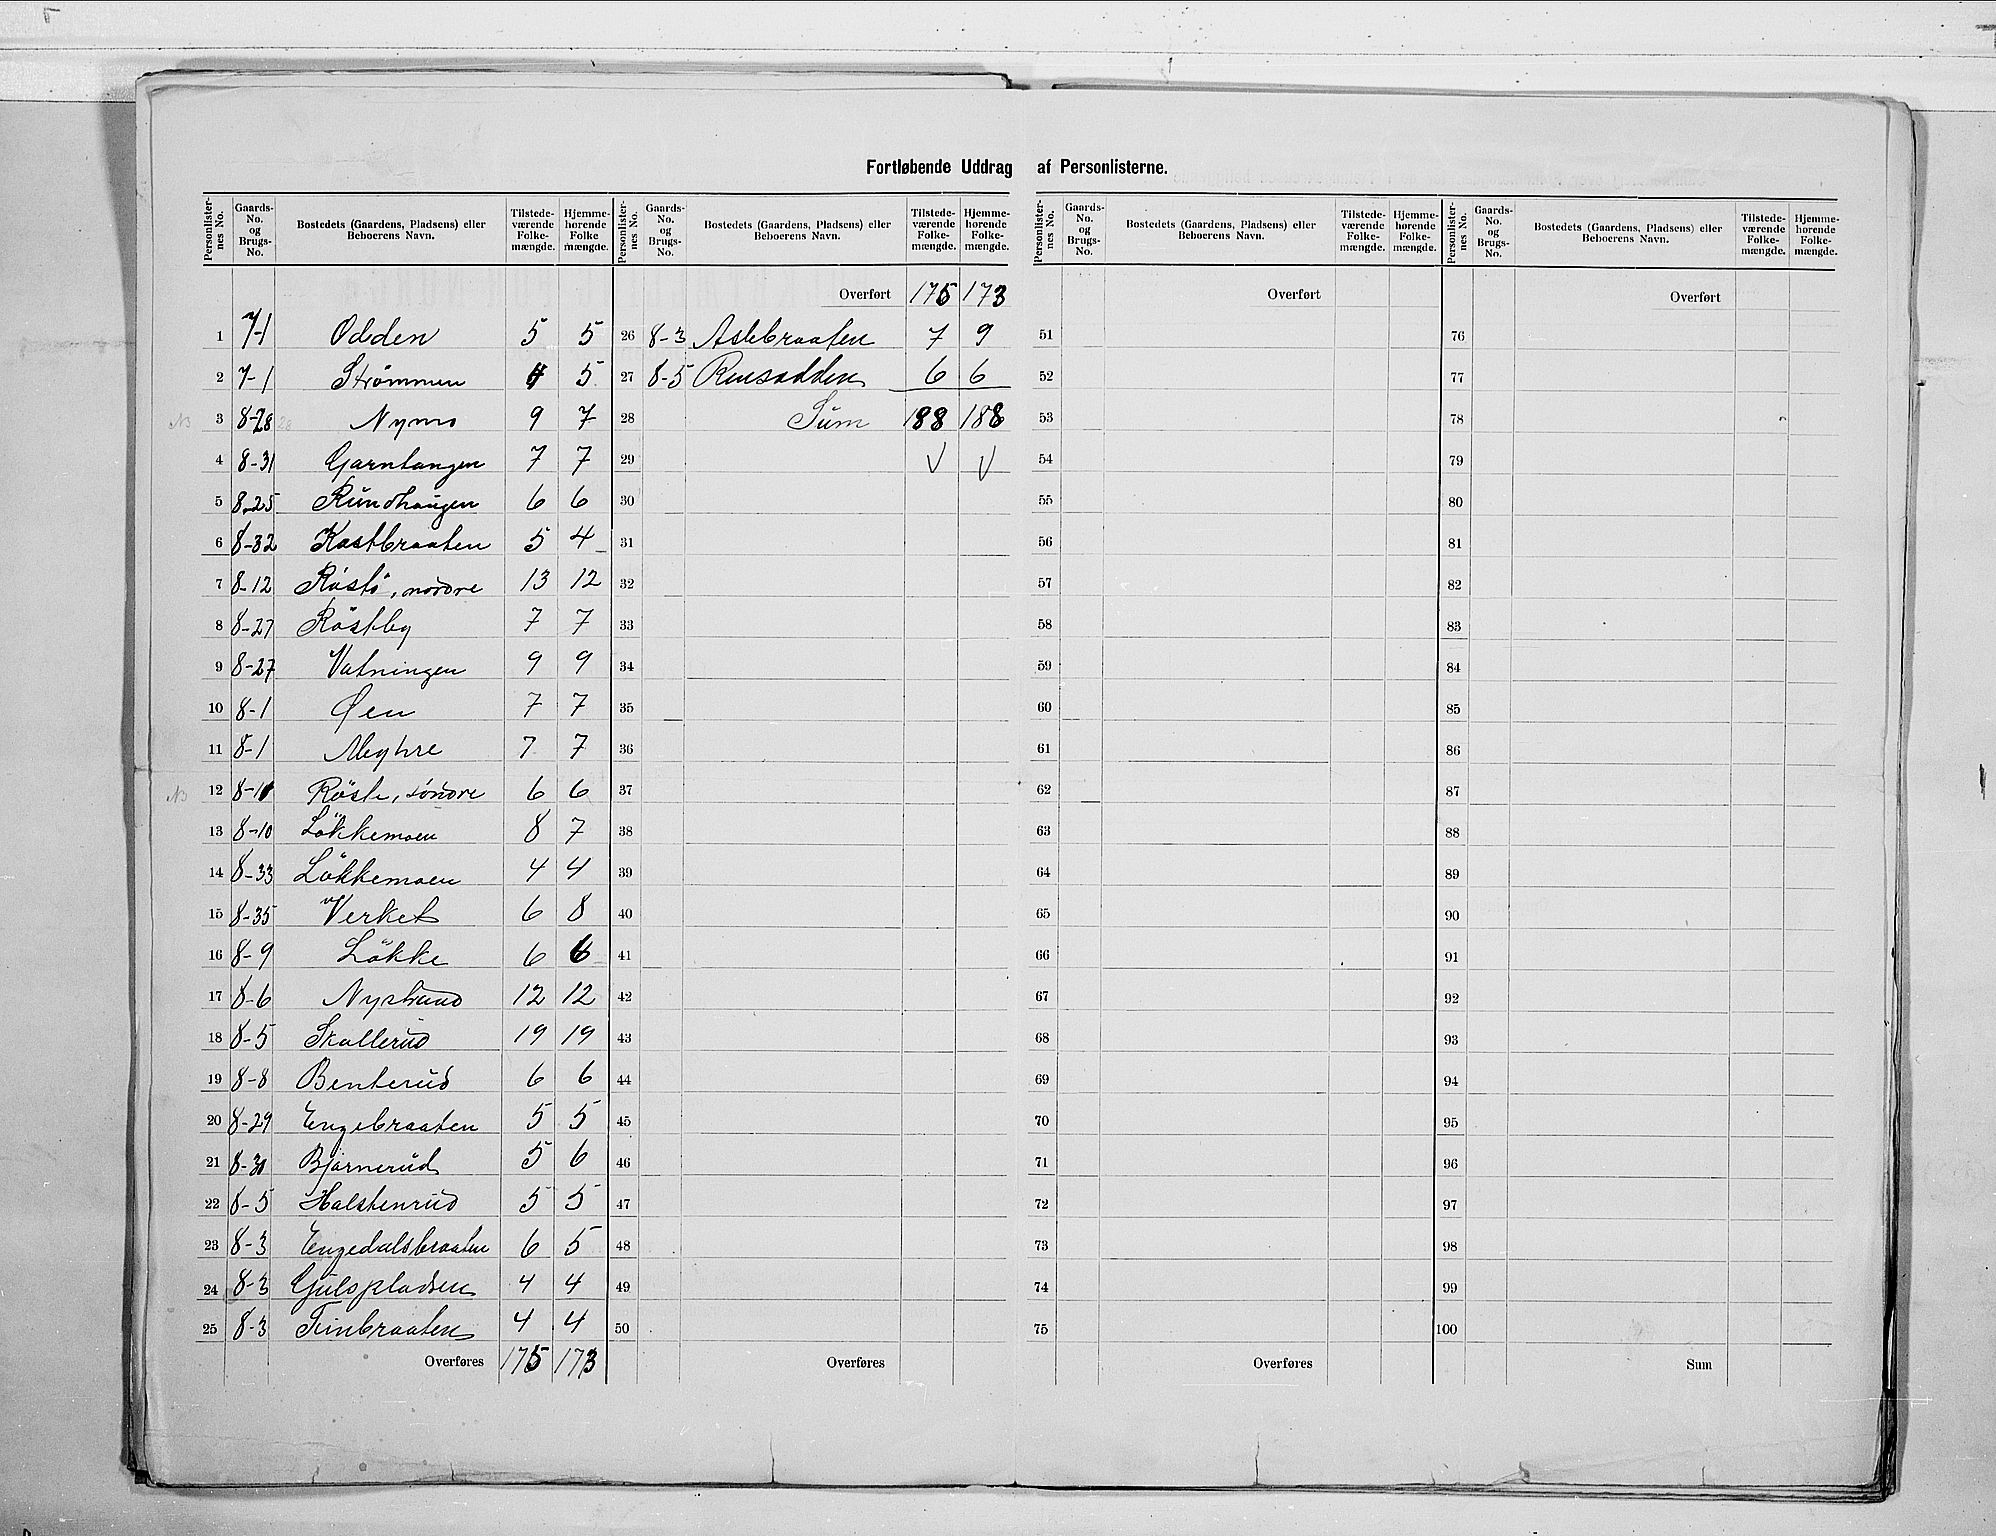 Fortløbende Uddrag af Personlisterne.
Personlister-nes No. Gaards-No. og Brugs-No. Bostedets (Gaardens, Pladsens) eller Beboerens Navn. Tilstede-værende Folke-mængde. Hjemme-hørende Folke mængde.
1 7-1 Odden 5 5
2 7-1 Strømmen 4 5
NB 3 8-28 28 Nymo 9 7
4 8-31 Garntangen 7 7
5 8-25 Rundhaugen 6 6
6 8-32 Kastbraaten 5 4
7 8-12 Röstö, nordre 13 12
8 8-27 Röstby 7 7
9 8-27 Vatningen 9 9
10 8-1 Øen 7 7
11 8-1 7 7
NB 12 Röste, söndre 6 6
13 8-10 Lökkemoen 8 7
14 8-33 Lökkemoen 4 4
15 8-35 Verket 6 8
16 8-9 Lökke 6 6
17 8-6 Nystrand 12 12
18 8-5 Skollerud 19 19
19 8-8 Benterud 6 6
20 8-29 Engebraaten 5 5
21 Bjørnerud 5 6
22 8-5 Halstenrud 5 5
23 8-3 Engedalsbraaten 6 5
24 8-3 Gulspladsen 4 4
25 8-3 Finbraaten 4 4
Overføres 175 173
Personlister-nes No. Gaards-No. og Brugs-No. Bostedets (Gaardens, Pladsens) eller Beboerens Navn. Tilstede-værende Folke-mængde. Hjemme-hørende Folke-mængde.
Overført 175 173
26 8-3 Aslebraaten 7 9
27 8-5 Rensodden 6 6
28 Sum 188 188
29 V V
30
31
32
33
34
35
36
37
38
39
40
41
42
43
44
45
46
47
48
49
50
Overføres
Personlister-nes No. Gaards-No. og Brugs-No. Bostedets (Gaardens, Pladsens) eller Beboerens Navn. Tilstede-værende Folke-mængde. Hjemme-hørende Folke-mængde.
Overført
51
52
53
54
55
56
57
58
59
60
61
62
63
64
65
66
67
68
69
70
71
72
73
74
75
Overføres
Personlister-nes No. Gaards-No. og Brugs-No. Bostedets (Gaardens, Pladsens) eller Beboerens Navn. Tilstede-værende Folke-mængde. Hjemme-hørende Folke-mængde.
Overført
76
77
78
79
80
81
82
83
84
85
86
87
88
89
90
91
92
93
94
95
96
97
98
99
100
Sum